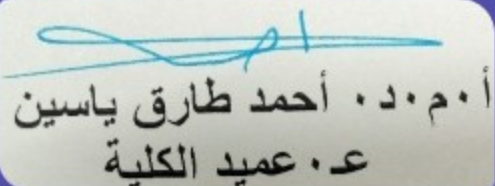 أ.م.د. أحمد طارق ياسين
عـ. عميد الكلية